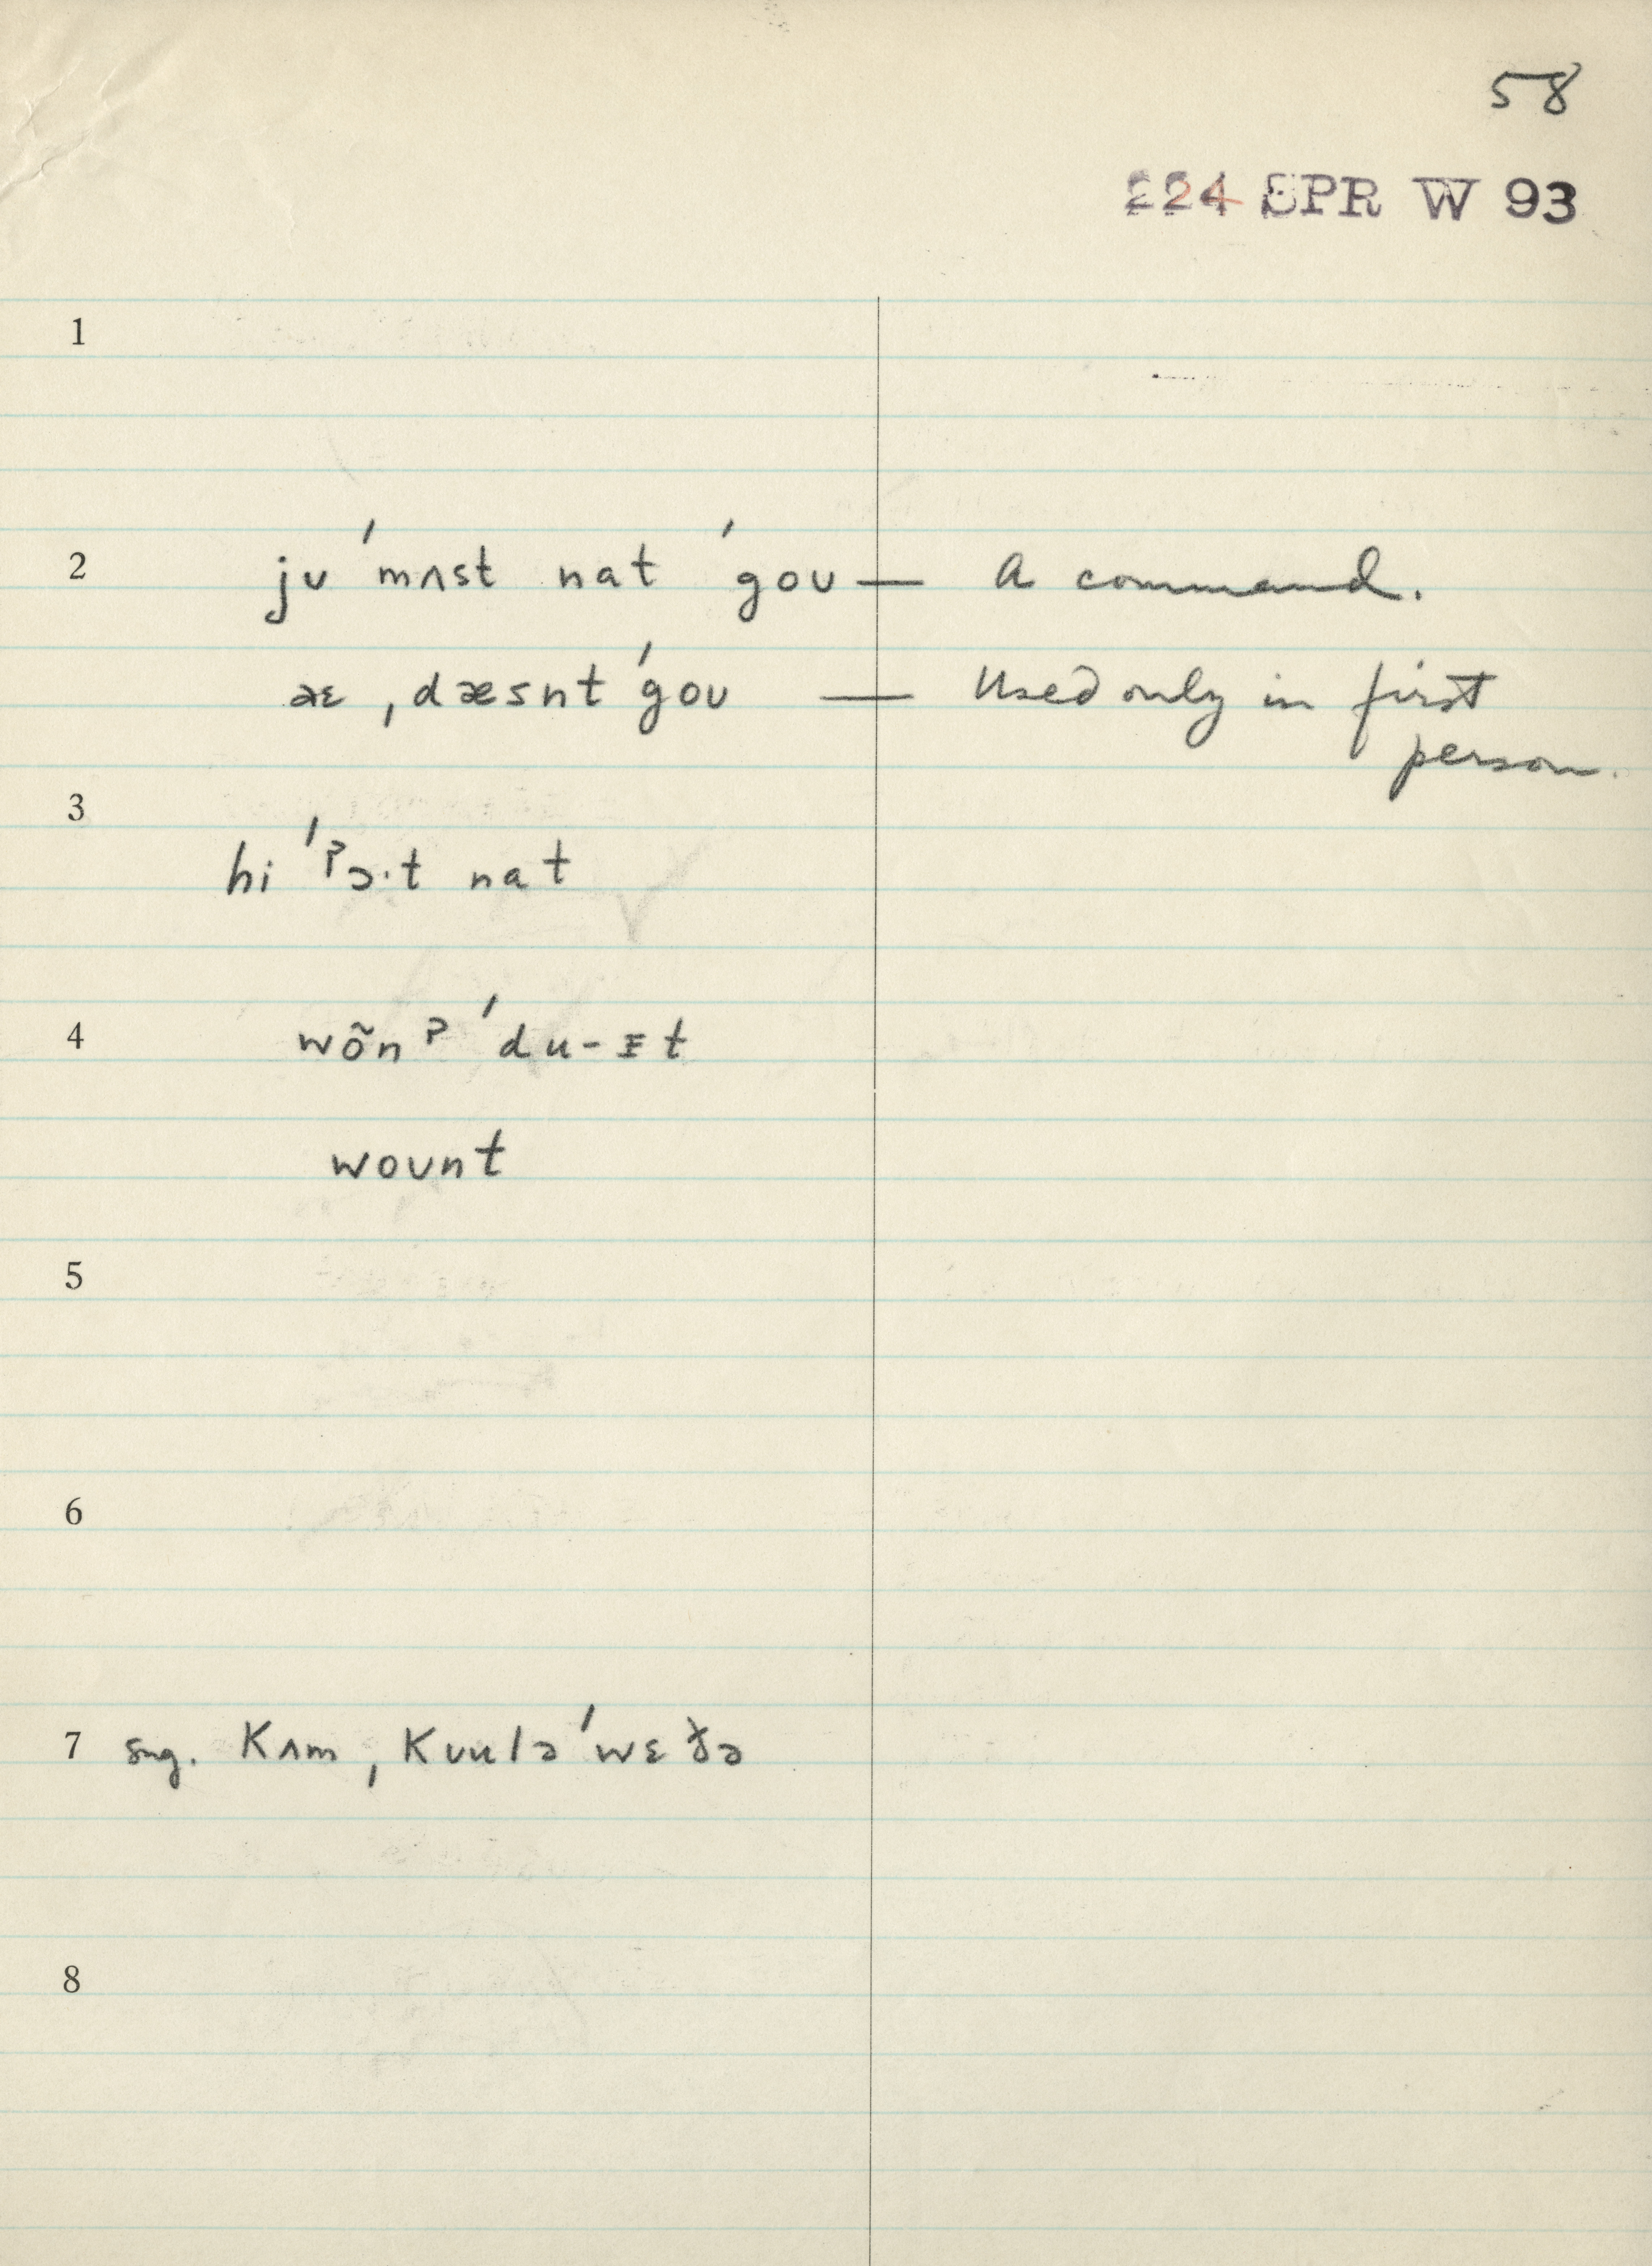 58
224 SPR W 93
1
2 jʊ ˈmʌst nat ˈgoʊ — A command.
æɛ ˌdæsnt ˈgoʊ — Used only in first
person.
3
hi ˈʔɔ·t nat
4 wõnʔ ˈdu-ɪt
woʊnt
5
6
7 sng. Kʌm, Kʊulə ˈwɛðə
8